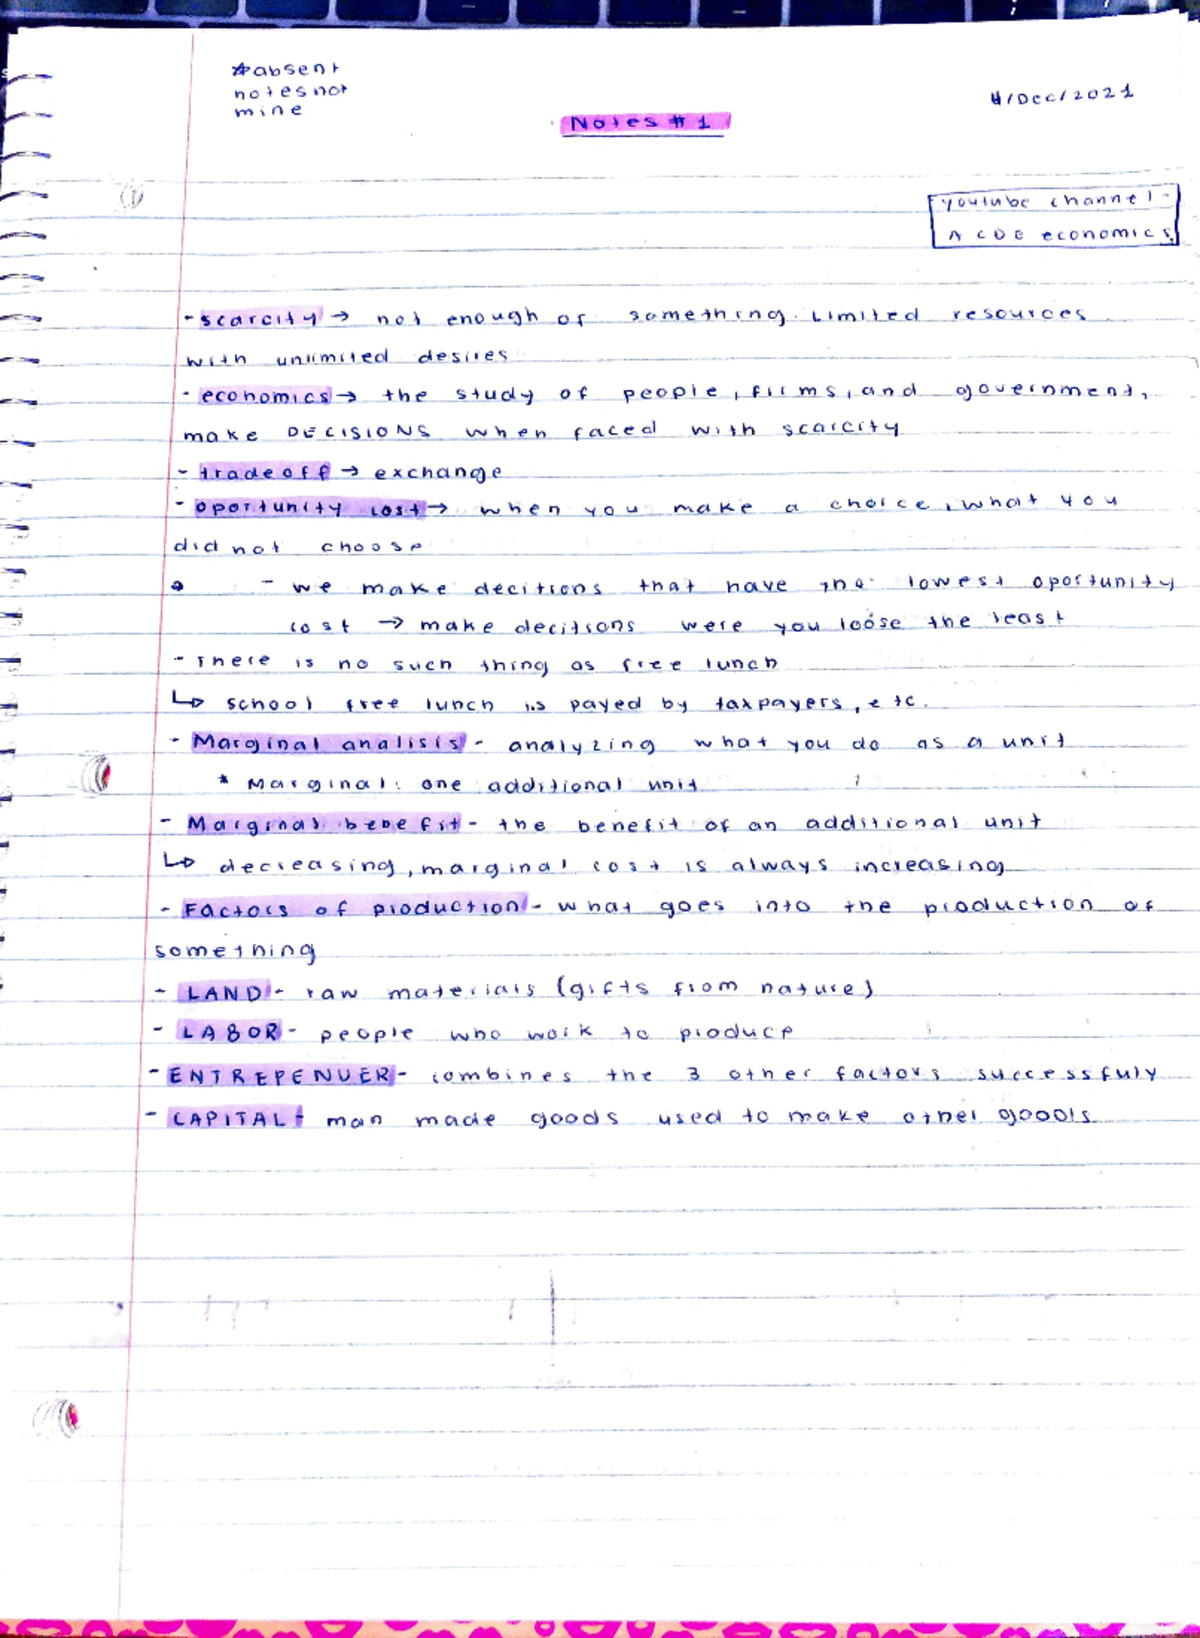 *absent
notes not
mine
4/Dec/2021
Notes #1
youtube channel-
ACDE economics
- scarcity → not enough of something. Limited resources
with unlimited desires
- economics → the study of people, firms, and government,
make DECISIONS when faced with scarcity
- tradeoff → exchange
- oportunity cost → when you make a choice, what you
did not choose
- we make decitions that have the lowest oportunity
cost → make decitions were you loose the least
- There is no such thing as free lunch
↳ school free lunch is payed by taxpayers, etc.
- Marginal analisis - analyzing what you do as a unit
* Marginal: one additional unit
- Marginal benefit - the benefit of an additional unit
↳ decreasing, marginal cost is always increasing
- Factors of production - what goes into the production of
something
- LAND - raw materials (gifts from nature)
- LABOR - people who work to produce
- ENTREPENUER - combines the 3 other factors successfuly
- CAPITAL - man made goods used to make other goods